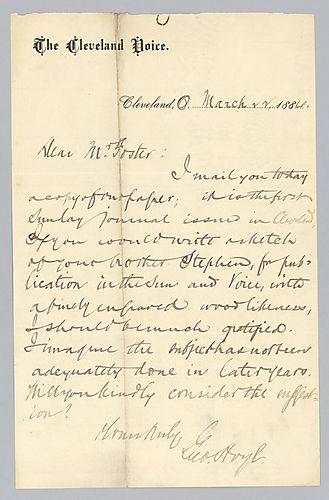 The Cleveland Voice.
Cleveland, O. March 22, 1884.
Dear Mr. Foster:
I mail you today
a copy of our paper; it is the first
Sunday journal issue in Cleveland.
If you would write a sketch
of your brother Stephen, for pub-
lication in the Sun and Voice, with
a finely engraved wood likeness,
I should be much gratified.
I imagine the subject has not been
adequately done in later years.
Will you kindly consider the suggest-
ion?
Yours truly,
Geo. Hoyt.